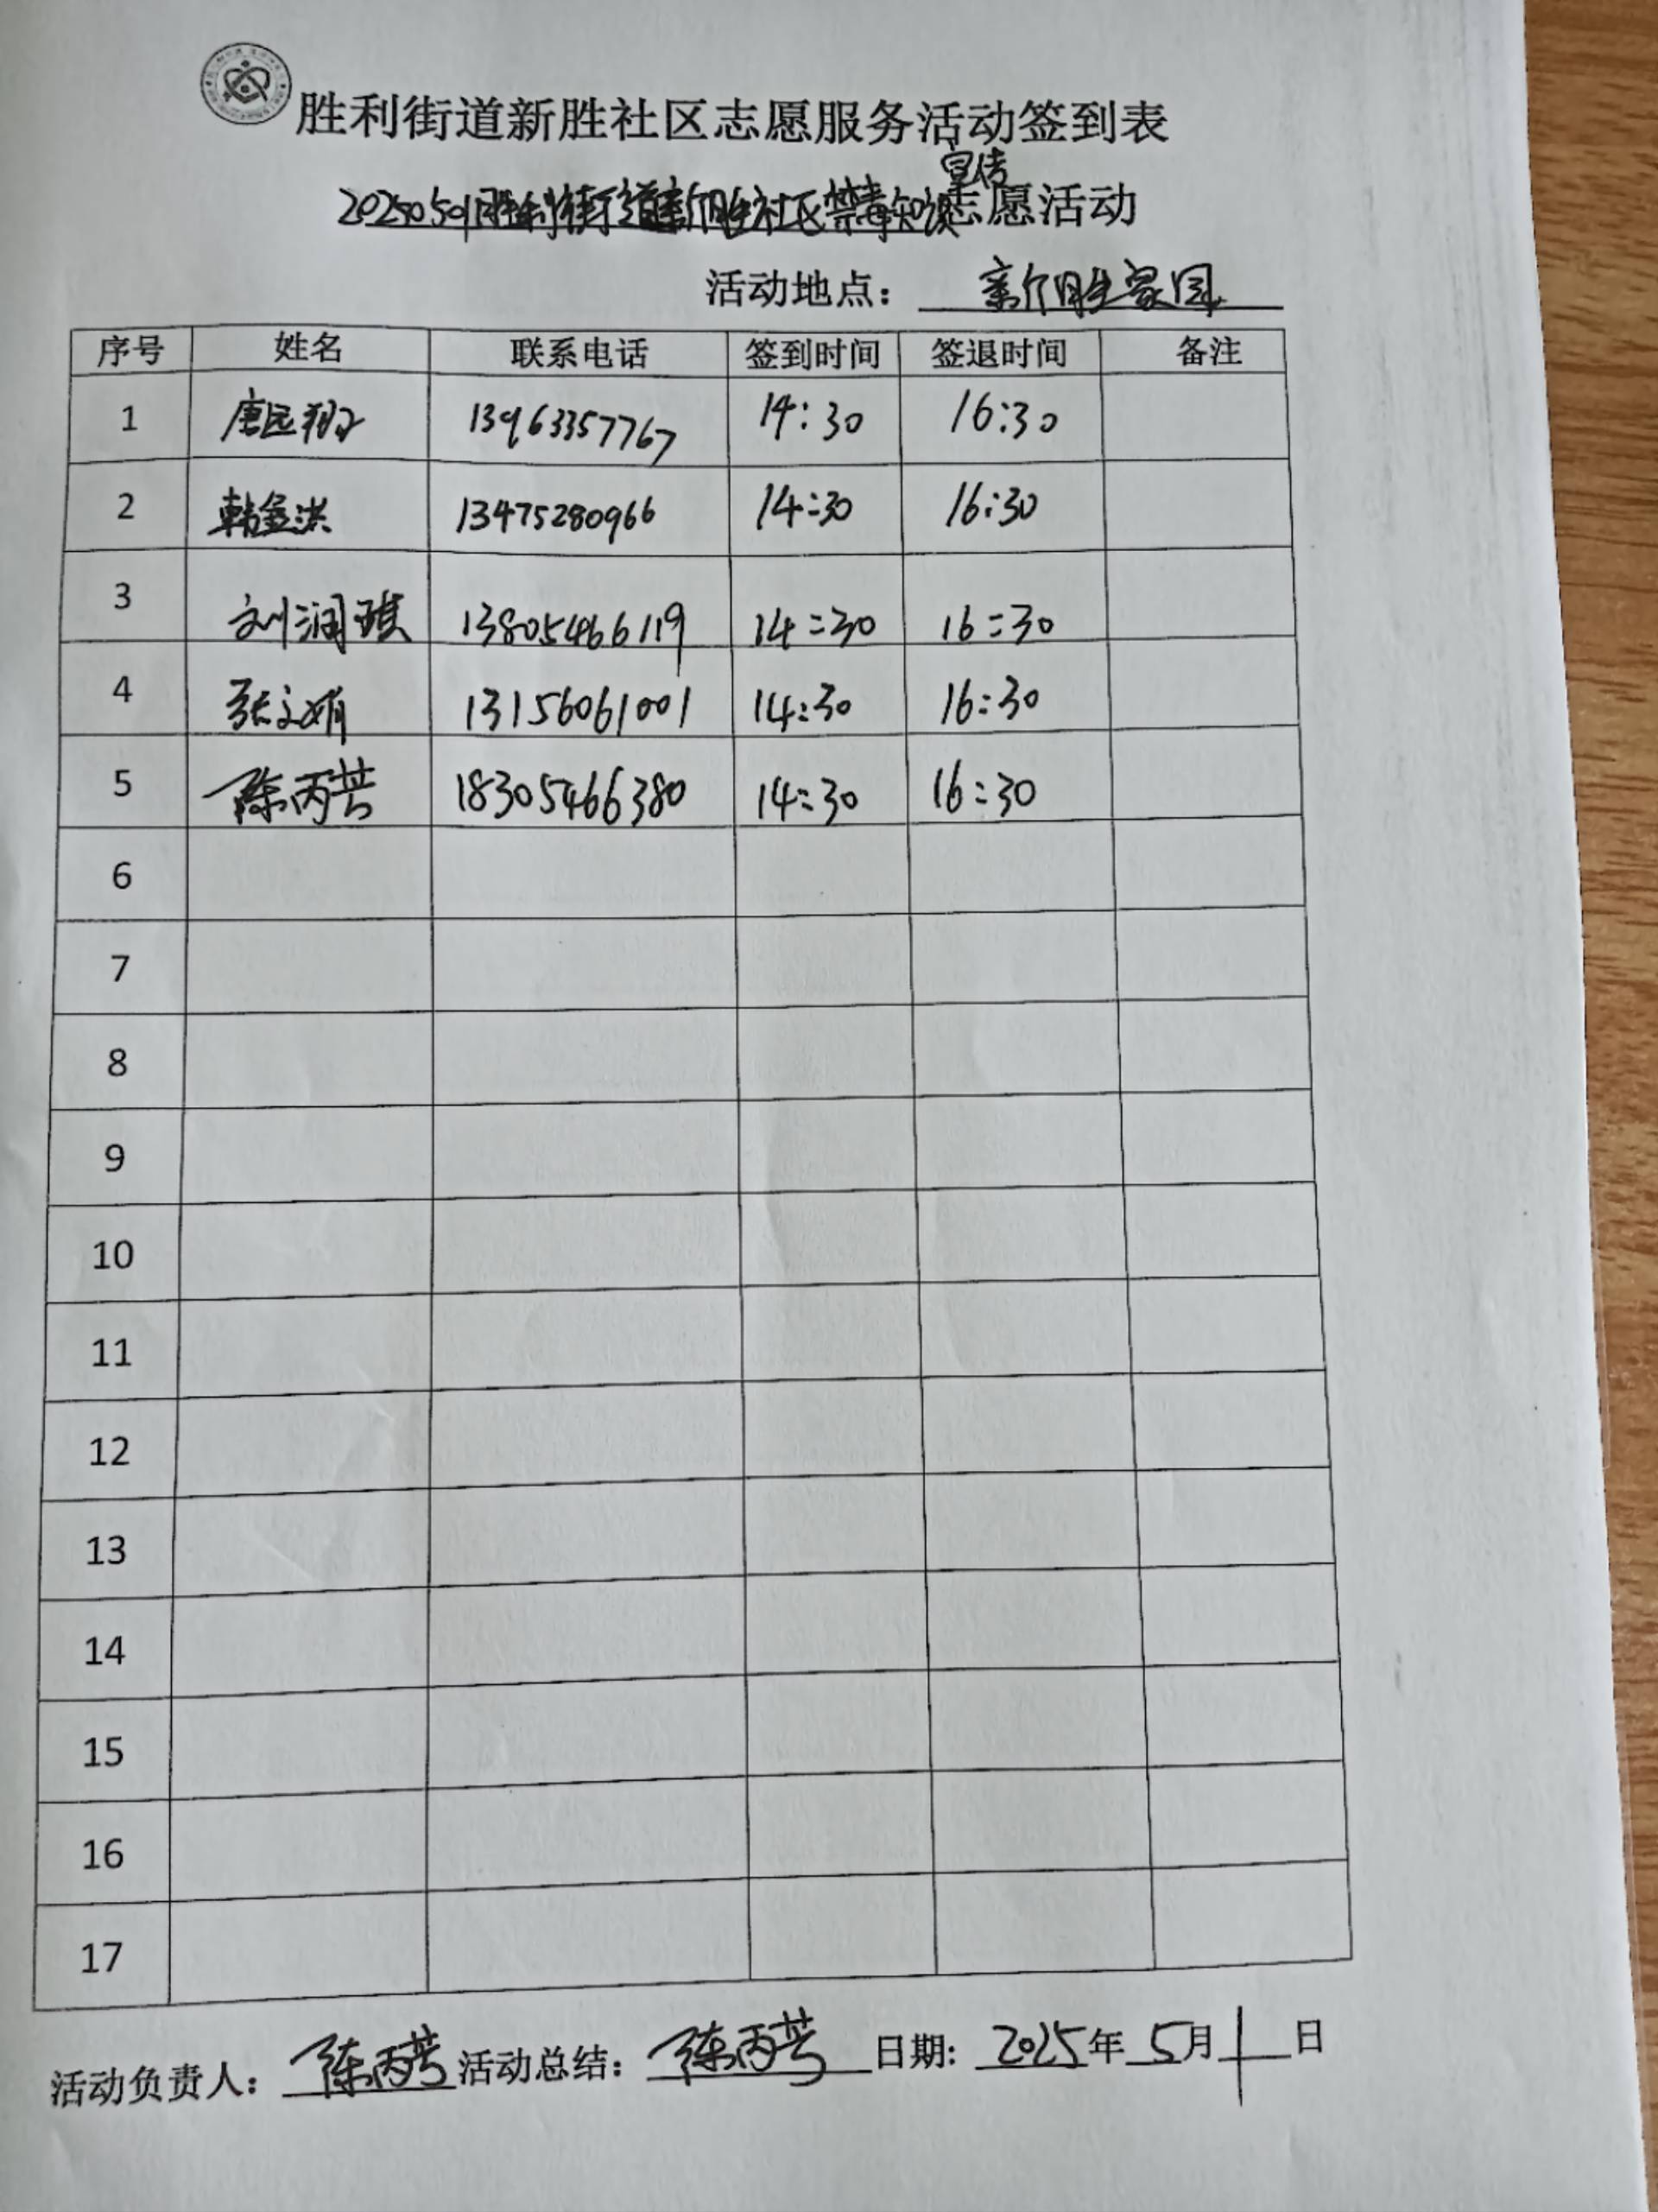 胜利街道新胜社区志愿服务活动签到表
宣传
20250501胜利街道新胜社区禁毒知识志愿活动
活动地点：新胜家园
序号 姓名 联系电话 签到时间 签退时间 备注
1 唐远翔 13963357767 14:30 16:30
2 韩金洪 13475280966 14:30 16:30
3 刘润琪 13805466119 14:30 16:30
4 张文娟 13156061001 14:30 16:30
5 陈丙芸 18305466380 14:30 16:30
6
7
8
9
10
11
12
13
14
15
16
17
活动负责人：陈丙芸 活动总结：陈丙芸 日期：2025年5月1日